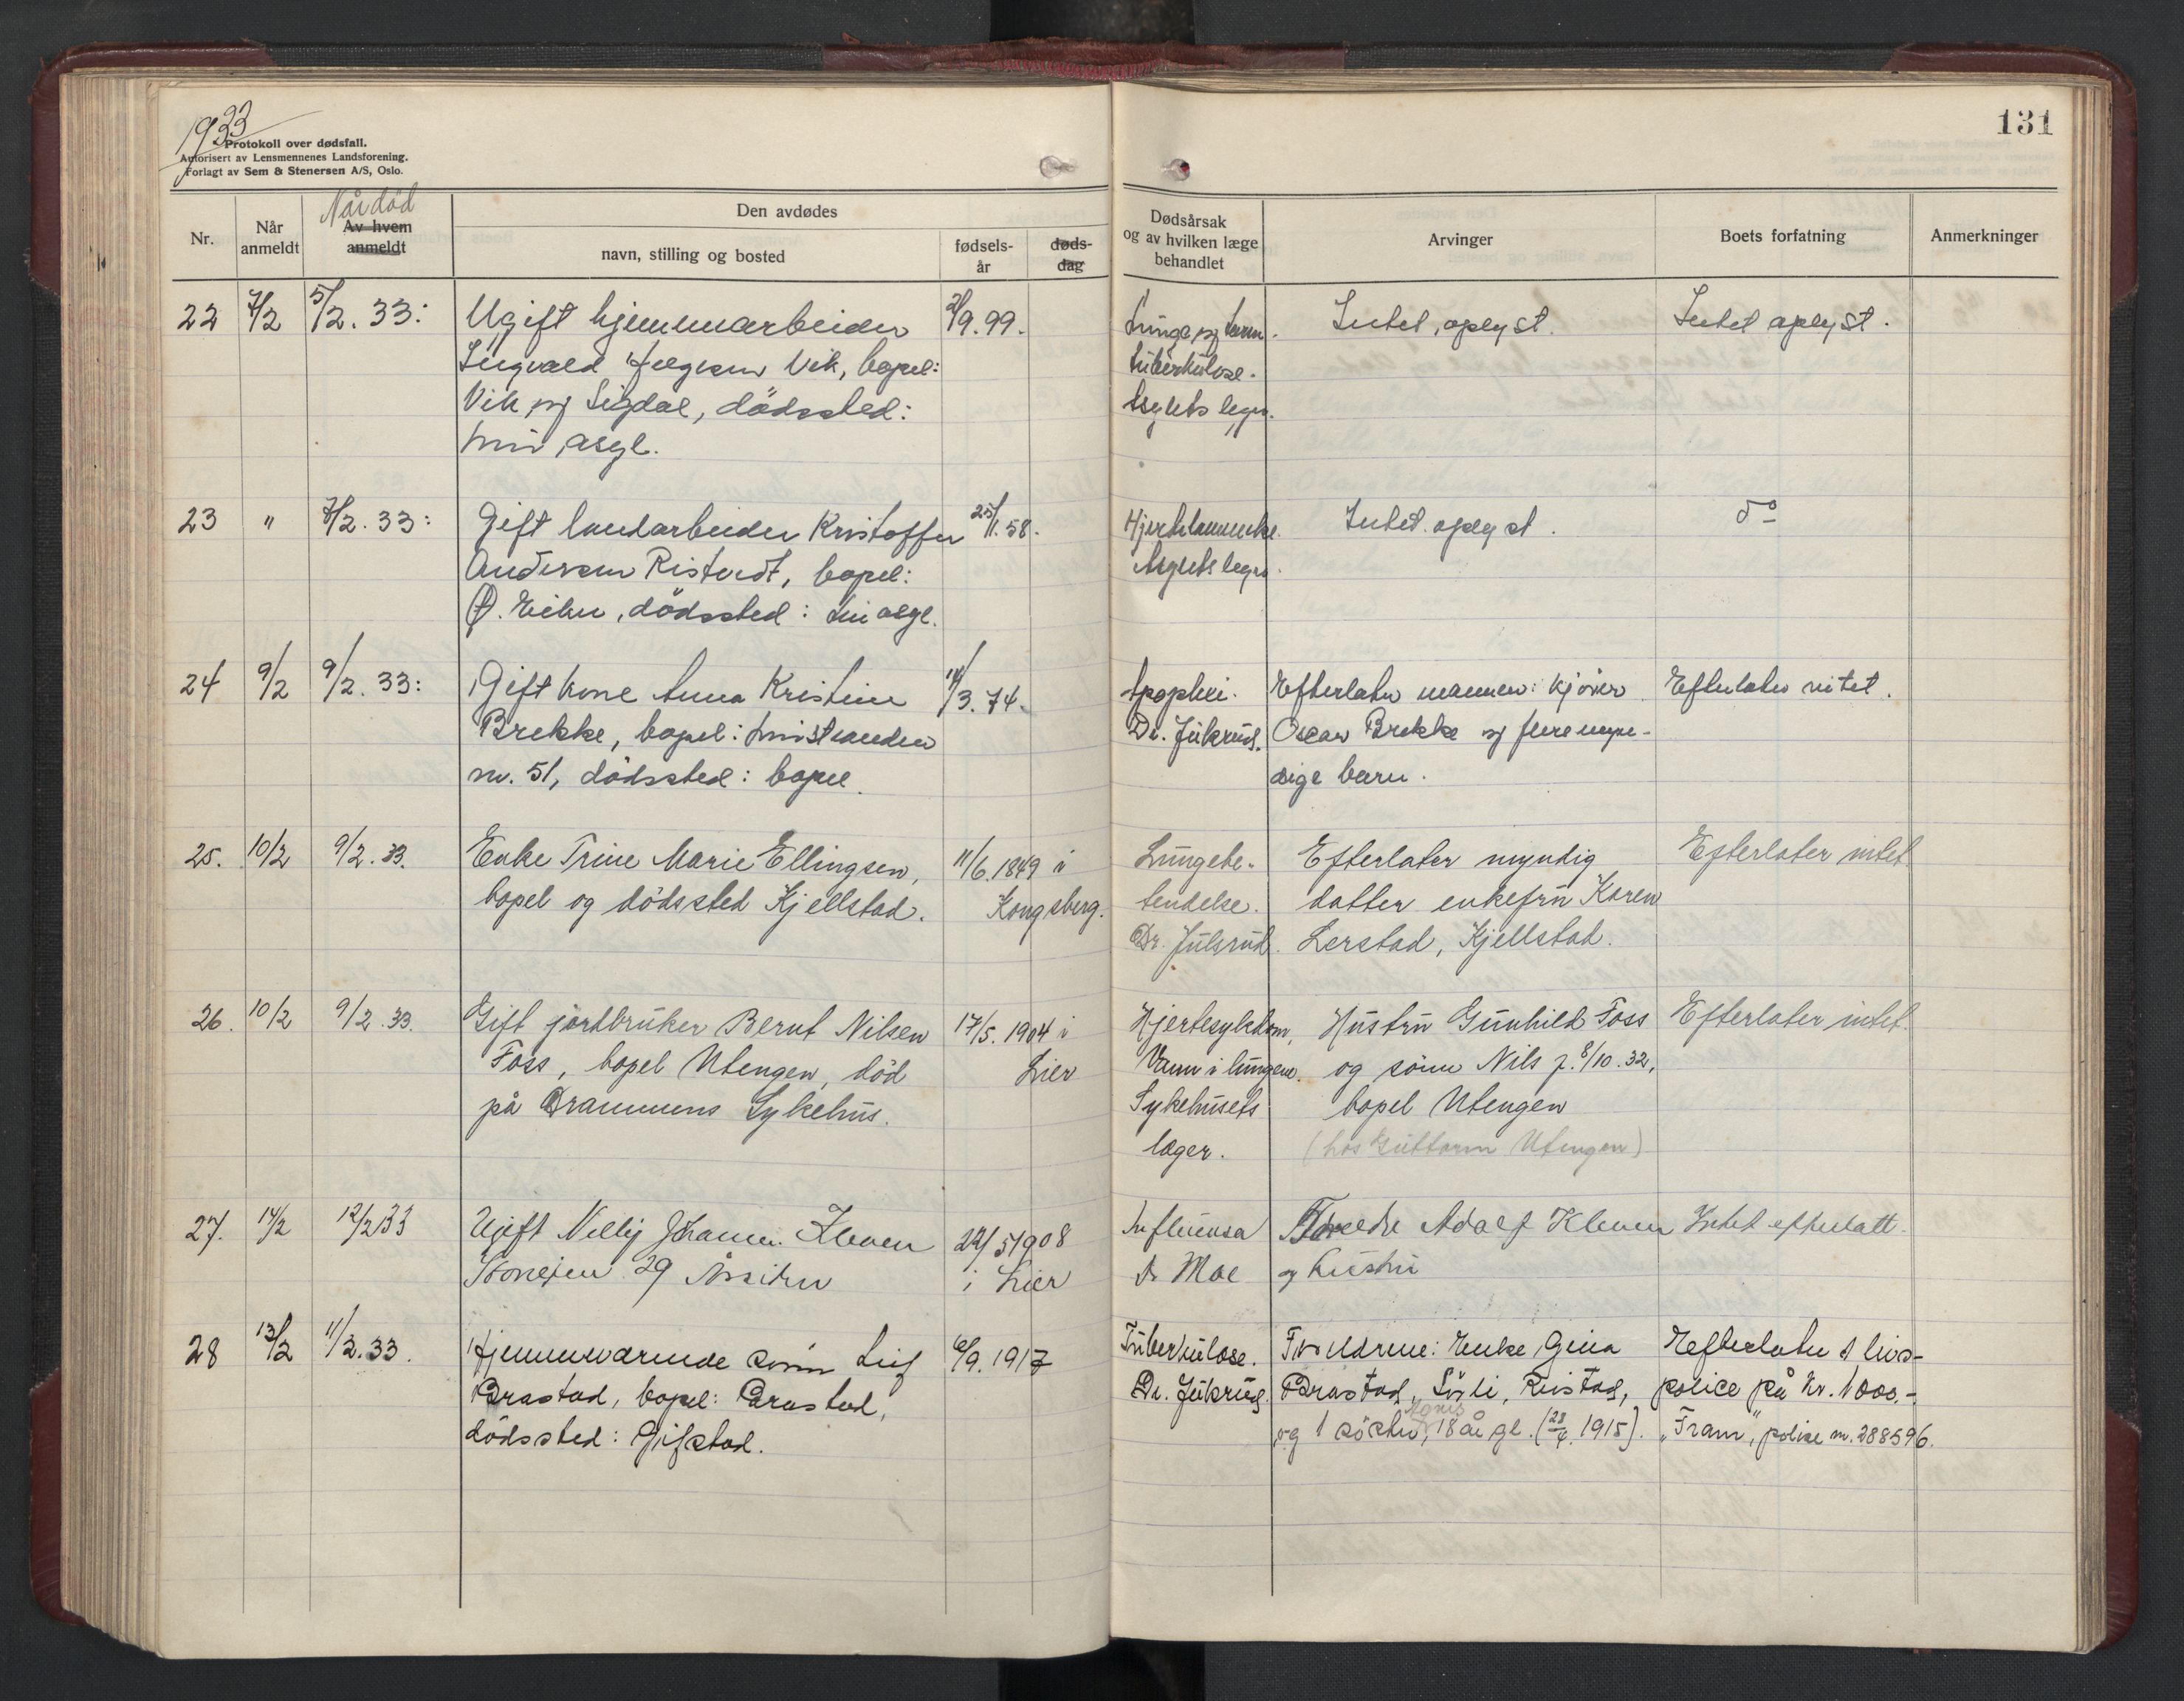 1933
Protokoll over dødsfall.
Autorisert av Lensmennenes Landsforening.
Forlagt av Sem & Stenersen A/S, Oslo.
131
Nr.
Når anmeldt
Når död
Av hvem anmeldt
Den avdødes
navn, stilling og bosted
fødsels-år
døds-dag
Dødsårsak
og av hvilken læge
behandlet
Arvinger
Boets forfatning
Anmerkninger
22 7/2 5/2. 33: Ugift hjemmearbeider /9. 99. Lunge og
Ingvald Helgesen Vik, bopel: tuberkulose.
Vik og Sigdal, dödssted: Asylets leger.
Lier asyl.
Intet oplyst. Intet oplyst.
23 " 7/2. 33: Gift landarbeider Kristoffer 25/11. 58. Hjertelammelse. Intet oplyst. do
Andersen, bopel: Asylets leger.
Ø. Eiker, dödssted: Lier asyl.
24 9/2 9/2. 33: Gift kone Anna Kristine 14/3. 74. Apoplexi. Efterlater mannen: kjører Efterlater intet.
Brekke, bopel: Lierstranden Dr. Julsrud. Oscar Brekke og flere myn-
nr. 51, dödssted: bopel. dige barn.
25. 10/2 9/2. 33. Enke Trine Marie Ellingsen, 11/6. 1849 i Lungebe- Efterlater myndig Efterlater intet
bopel og dödssted Kjellstad. Kongsberg. tendelse. datter enkefru Karen
Dr. Julsrud. Lerstad, Kjellstad.
26. 10/2 9/2. 33. Gift jordbruker Bernt Nilsen 17/5. 1904 i Hjertesykdom, Hustru Gunhild Foss Efterlater intet.
Foss, bopel Utengen, död Lier Vann i lungene. og sönn Nils f. 8/10. 32,
på Drammens Sykehus. Sykehusets bopel Utengen
læger. (hos Guttorm Utengen)
27. 14/2 12/2 33 Ugift Nelly Johanne Kleven 22/5 1908 Influensa Foreldre Adolf Kleven Intet efterlatt.
29 Åssiden i Lier Dr Moe og hustru
28 13/2 11/2. 33. Hjemmeværende sönn Leif 6/9. 1917 Tuberkulose. Foreldrene: Enke Gina Efterlater 1 livs-
Brastad, bopel: Brastad, Dr. Julsrud. Brastad, Sörli, police på kr. 1000.-
dödssted: Gifstad. og 1 söster, Agnes 18 år gl. (28/4. 1915). "Fram", police nr. 288596.